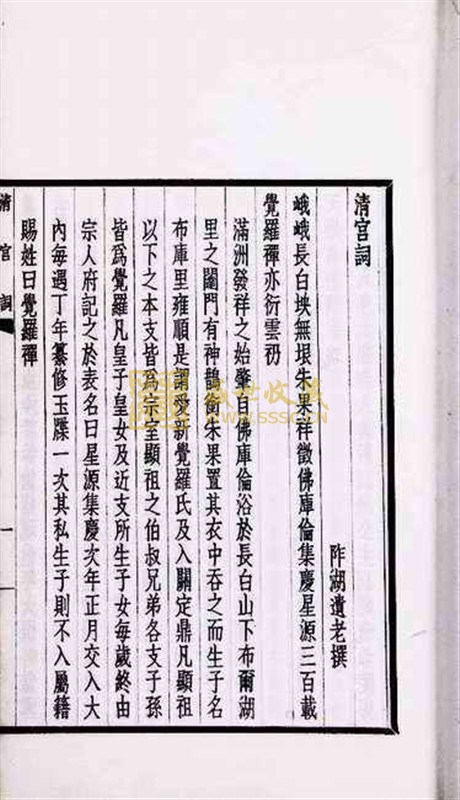 清宮詞
阼湖遺老撰
峨峨長白坱無垠朱果祥徵佛庫倫集慶星源三百載
覺羅禪亦衍雲礽
滿洲發祥之始肇自佛庫倫浴於長白山下布爾湖
里之闥門有神鵲啣朱果置其衣中吞之而生子名
布庫里雍順是謂愛新覺羅氏及入關定鼎凡顯祖
以下之本支皆爲宗室顯祖之伯叔兄弟各支子孫
皆爲覺羅凡皇子皇女及近支所生子女每歲終由
宗人府記之於表名曰星源集慶次年正月交入大
內每遇丁年纂修玉牒一次其私生子則不入屬籍
賜姓曰覺羅禪
清宮詞
一
盛世收藏
www.sssc.cn